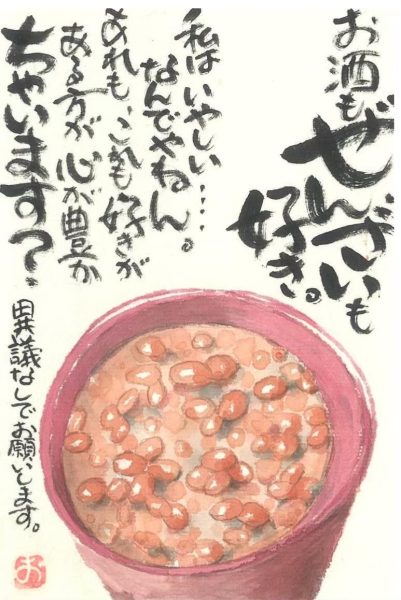 お酒も
ぜんざいも
好き。
私はいやしい……
なんでやねん。
あれも、これも好きが
ある方が心が豊か
ちゃいます？
異議なしでお願いします。
お